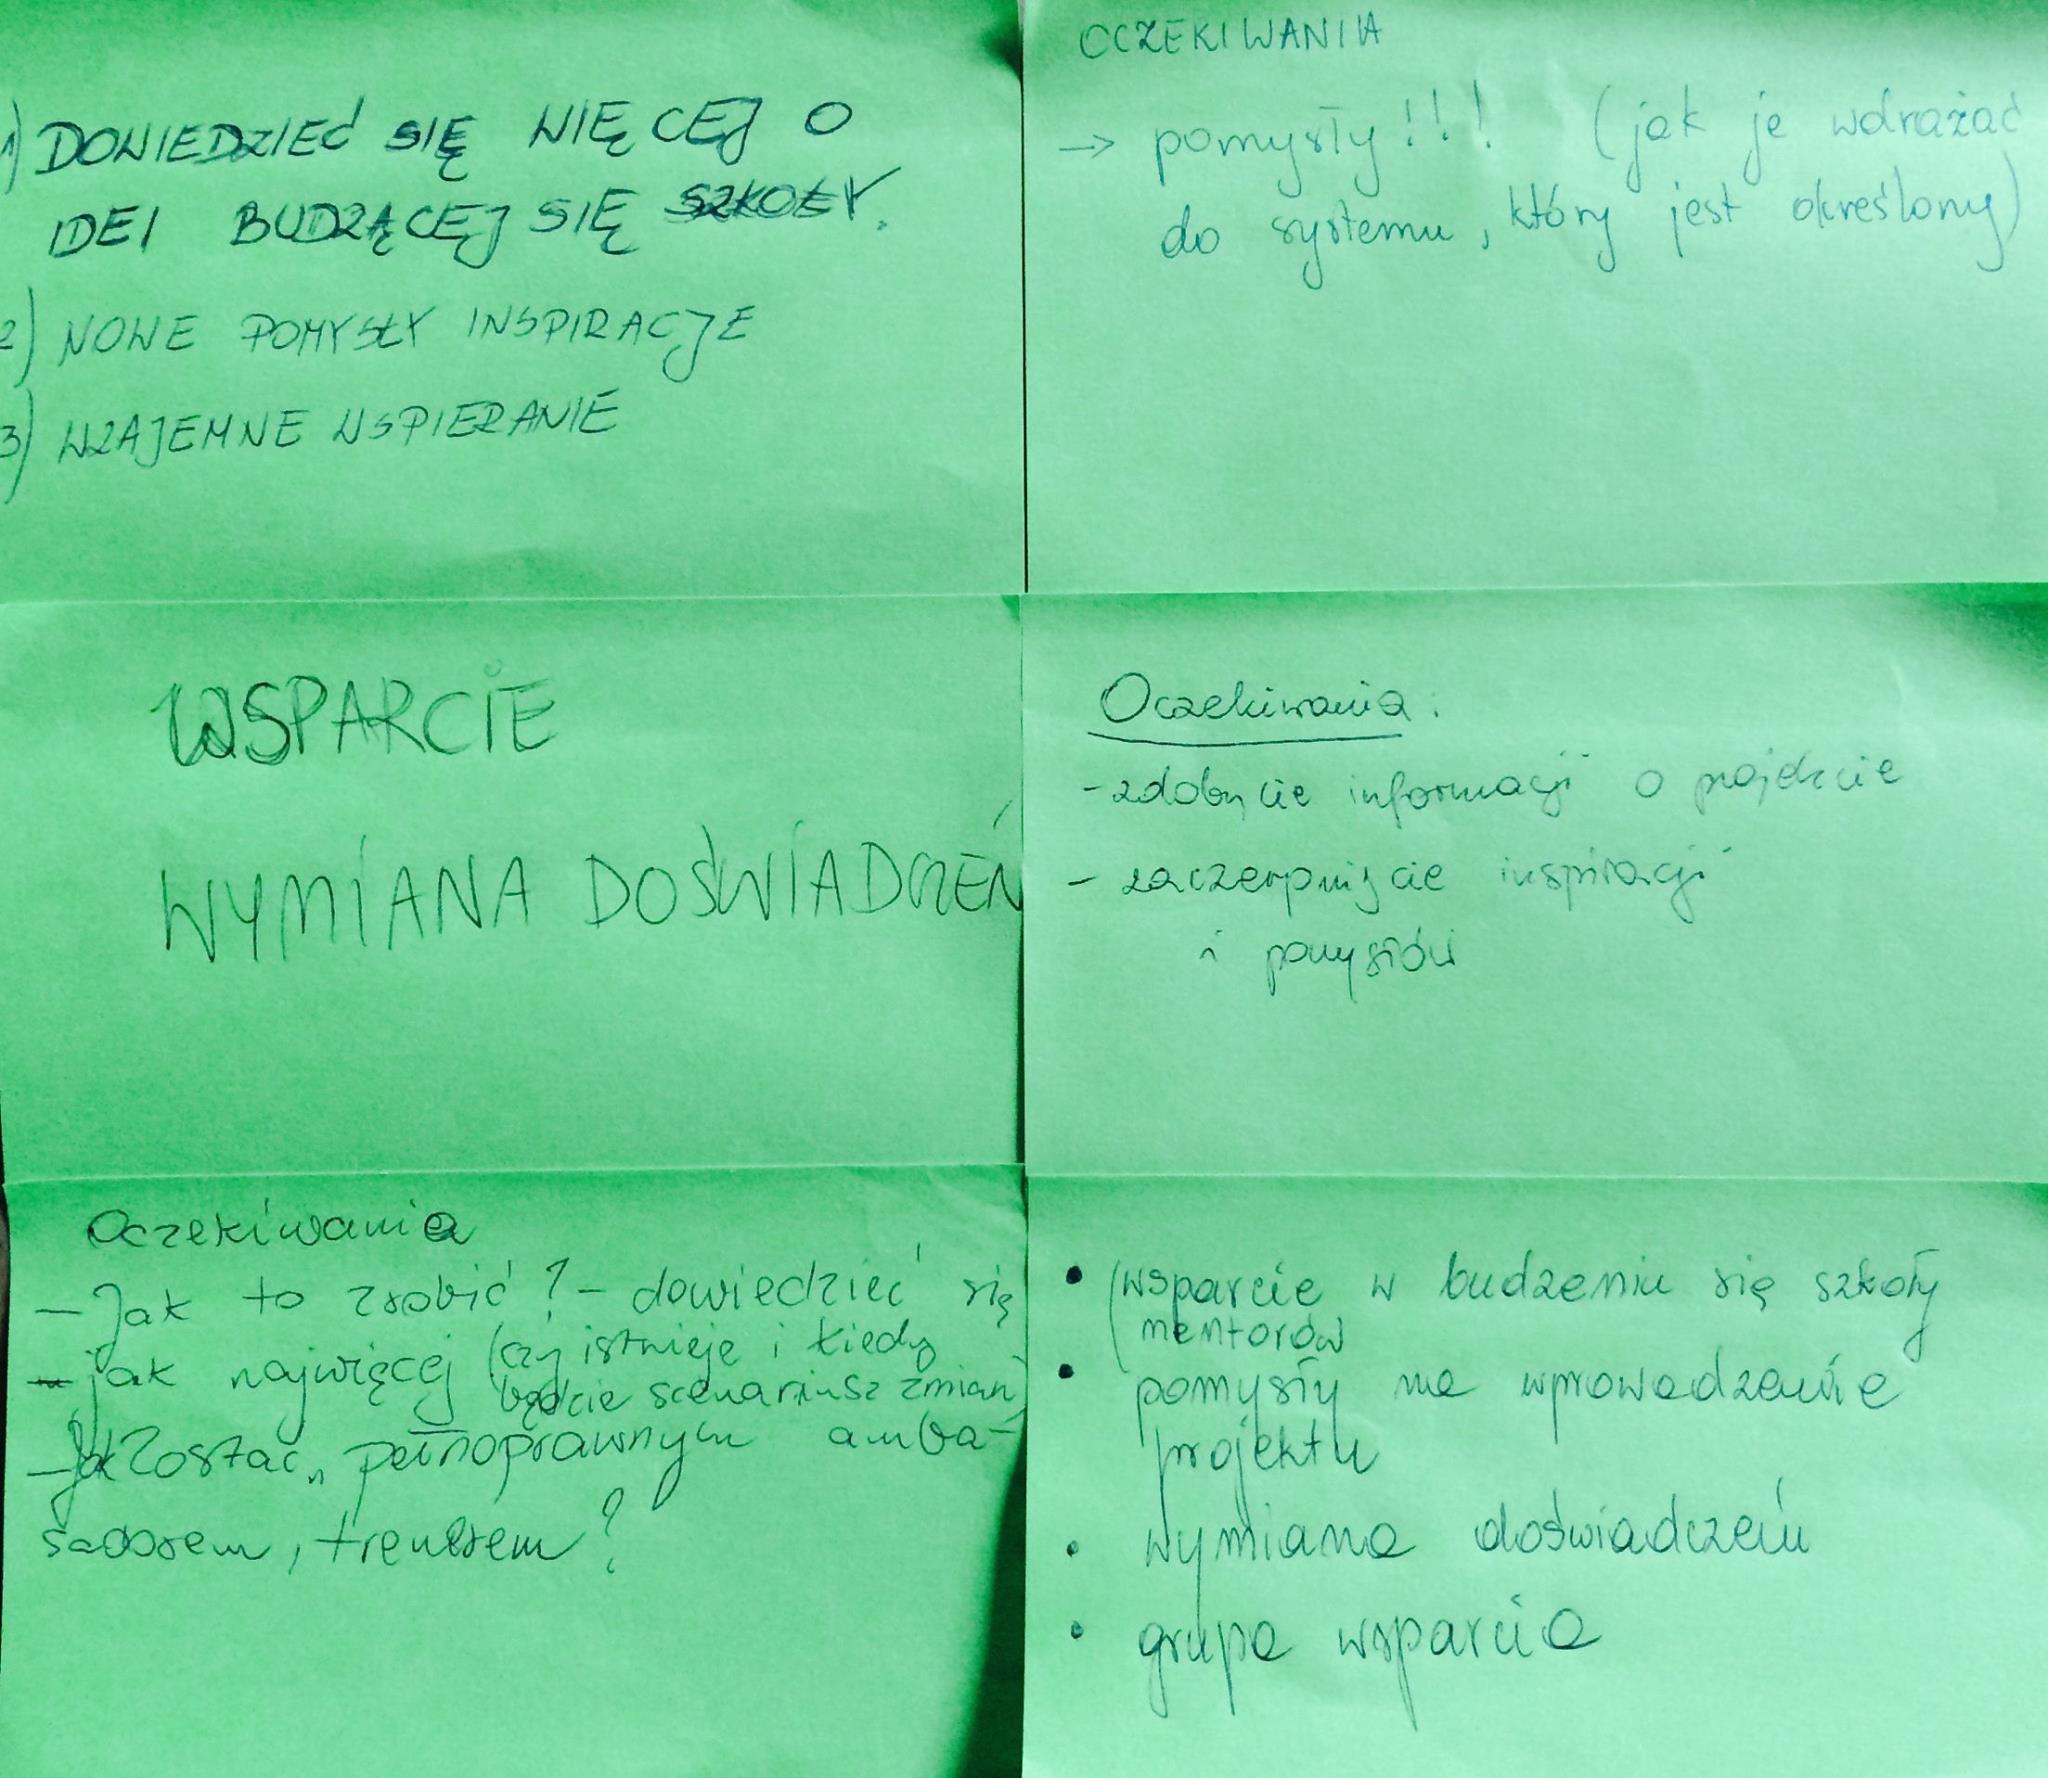 1) DOWIEDZIEĆ SIĘ WIĘCEJ O
IDEI BUDZĄCEJ SIĘ SZKOŁY.
2) NOWE POMYSŁY INSPIRACJE
3) WZAJEMNE WSPIERANIE
OCZEKIWANIA
→ pomysły!!! (jak je wdrażać
do systemu, który jest określony)
WSPARCIE
WYMIANA DOŚWIADCZEŃ
Oczekiwania:
- zdobycie informacji o projekcie
- zaczerpnięcie inspiracji
i pomysłów
Oczekiwania
- Jak to zrobić? - dowiedzieć się
- jak najwięcej (czy istnieje i kiedy
będzie scenariusz zmian)
- Jak zostać „pełnoprawnym amba-
sadorem, trenerem?
• (wsparcie w budzeniu się szkoły
mentorów
• pomysły na wprowadzenie
projektu
• wymiana doświadczeń
• grupa wsparcia